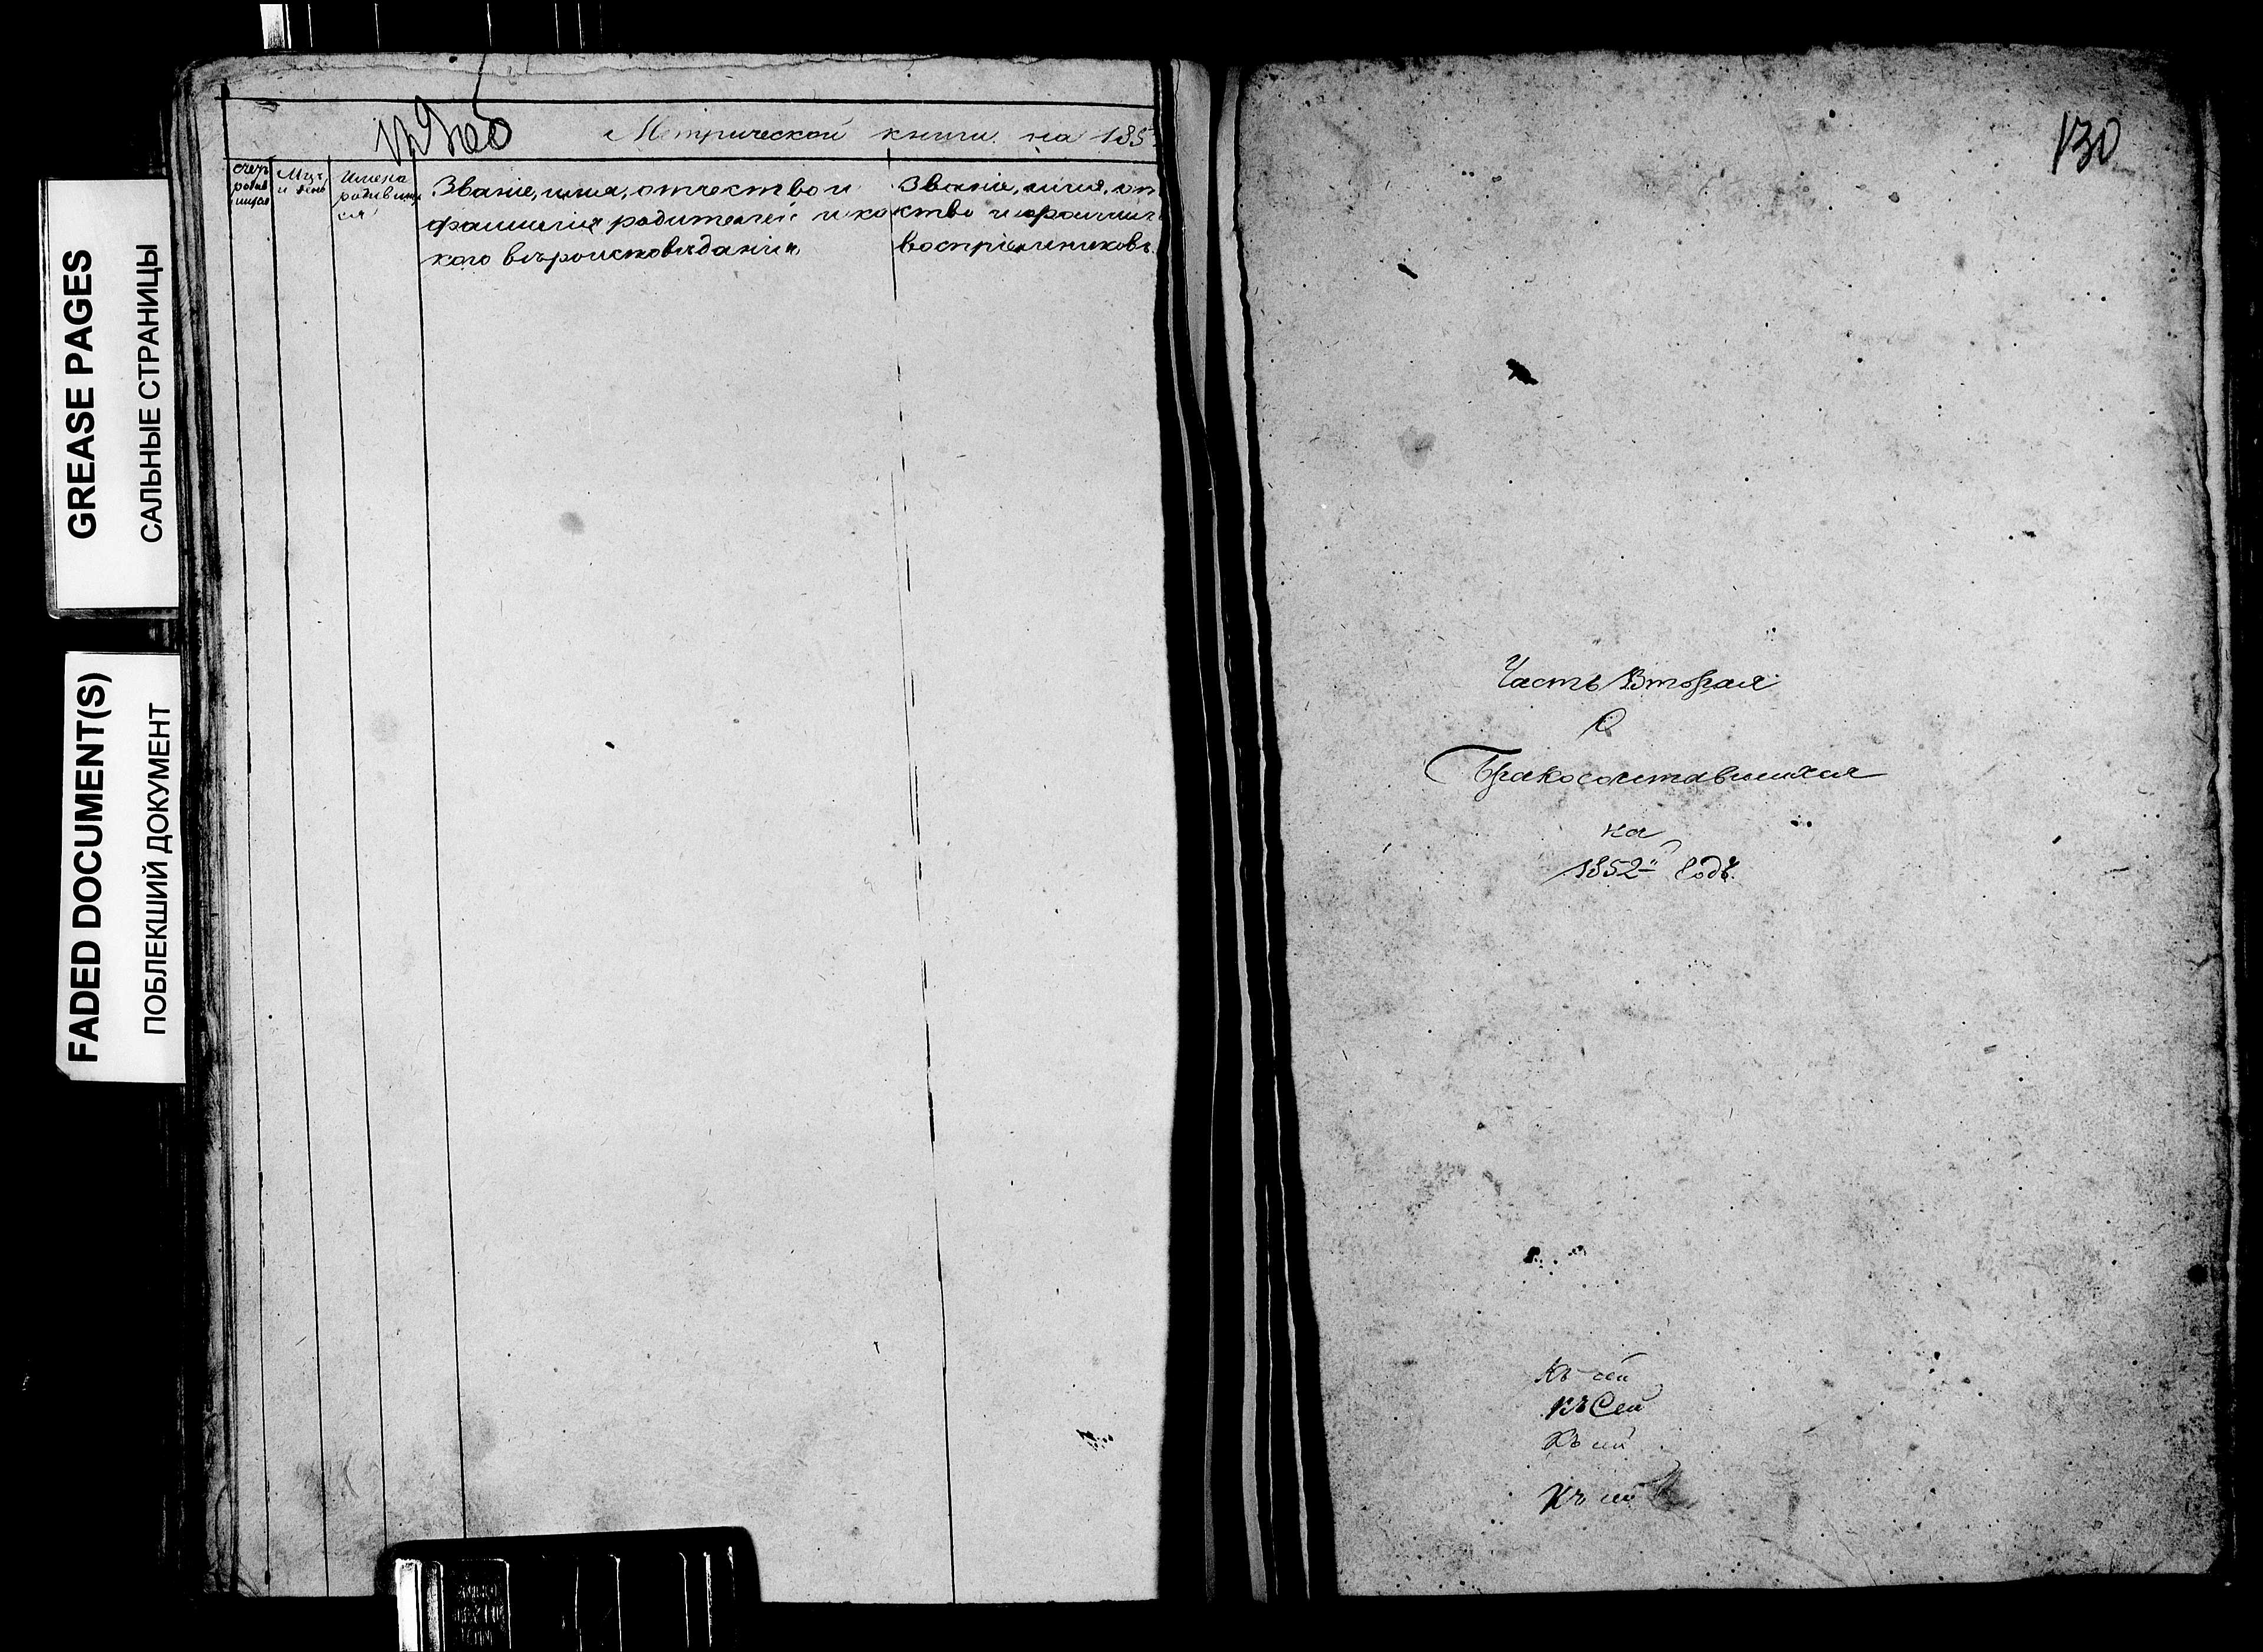 GREASE PAGES
САЛЬНЫЕ СТРАНИЦЫ
FADED DOCUMENT(S)
ПОБЛЕКШИЙ ДОКУМЕНТ
Метрической книги на 185
Мцъ,
и день
Имена
родивши
ся
Званіе, имя, отчество и
фамилія родителей и ка
кого вѣроисповѣданія
Званіе, имя, от
чество и фамилі
воспріемниковъ.
130
Часть Вторая
О
Бракосочетавшихся
на
1852й Годъ.
Къ сей
Къ Сей
Къ сей
Къ сей